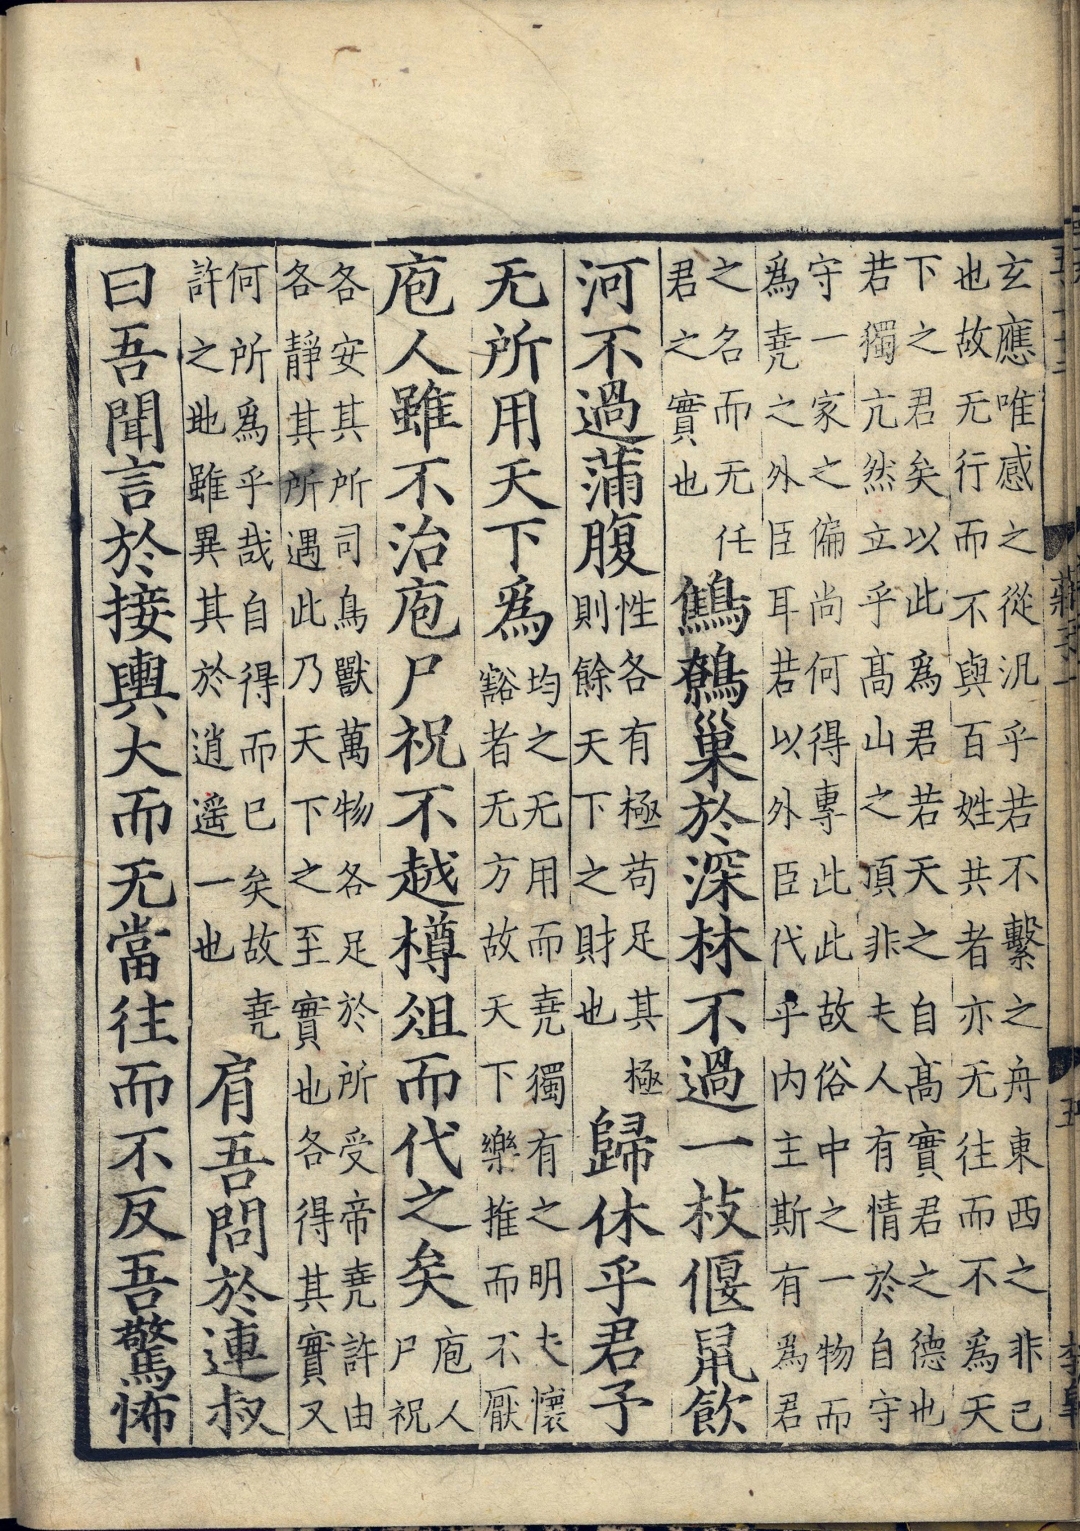 玄應唯感之從汎乎若不繫之舟東西之非己
也故无行而不與百姓共者亦无往而不爲天
下之君矣以此爲君若天之自高實君之德也
若獨亢然立乎高山之頂非夫人有情於自守
守一家之偏尚何得專此此故俗中之一物而
爲堯之外臣耳若以外臣代乎內主斯有爲君
之名而无任
君之實也
鷦鷯巢於深林不過一枝偃鼠飲
河不過蒲腹
性各有極苟足其極
則餘天下之財也
歸休乎君予
无所用天下爲
均之无用而堯獨有之明夫懷
豁者无方故天下樂推而不厭
庖人雖不治庖尸祝不越樽俎而代之矣
庖人
尸祝
各安其所司鳥獸萬物各足於所受帝堯許由
各靜其所遇此乃天下之至實也各得其實又
何所爲乎哉自得而已矣故堯
許之地雖異其於逍遥一也
肩吾問於連叔
曰吾聞言於接輿大而无當往而不反吾驚怖